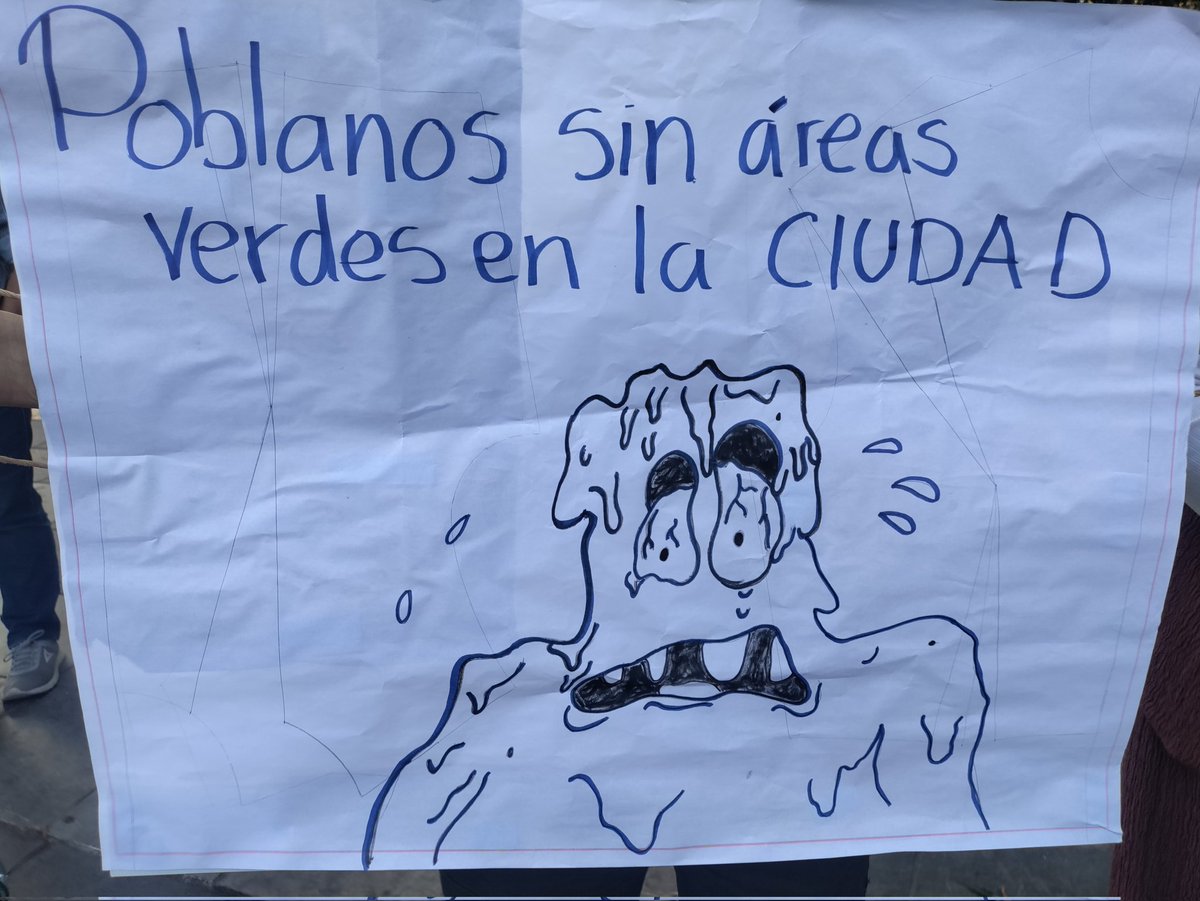 Poblanos sin áreas
verdes en la CIUDAD